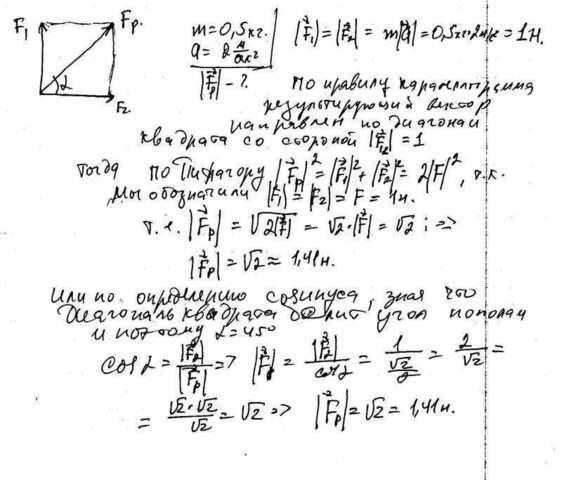 F₁ Fр.
α
F₂
m=0,5кг.
a = 2 м/сек²
|F⃗р| - ?
|F⃗₁|=|F⃗₂| = m|a⃗|=0,5кг·2м/с² = 1Н.
по правилу параллелограмма
результирующий вектор
направлен по диагонали
квадрата со стороной |F⃗₁,₂|=1
тогда по Пифагору |F⃗р|²=|F⃗₁|²+|F⃗₂|²= 2|F|², т.к.
мы обозначили |F₁| = |F₂| = F = 1н.
т.е. |F⃗р| = √2|F⃗| = √2·|F⃗| = √2 ; =>
|F⃗р| = √2 ≈ 1,41н.
Или по определению косинуса, зная что
диагональ квадрата делит угол пополам
и поэтому α=45⁰
cos α = |F⃗₂|/|F⃗р| => |F⃗р| = |F⃗₂|/cos α = 1/(√2/2) = 2/√2 =
= √2·√2/√2 = √2 => |F⃗р| = √2 = 1,41н.